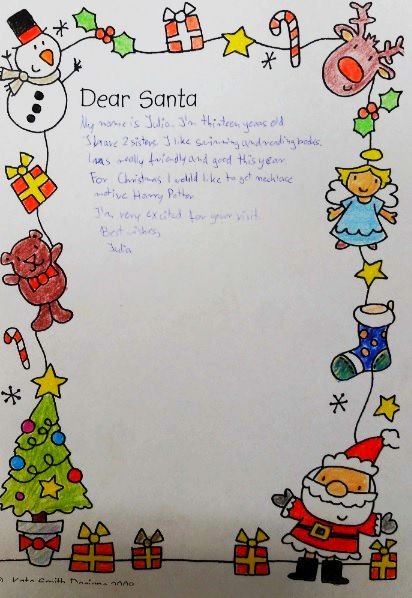 Dear Santa
My name is Julia. I'm thirteen years old
I have 2 sisters I like swimming and reading books.
I was really friendly and good this year
For Christmas I would like to get necklace
motive Harry Potter
I'm very excited for your visit.
Best wishes
Julia
Kate Smith Designs 2008